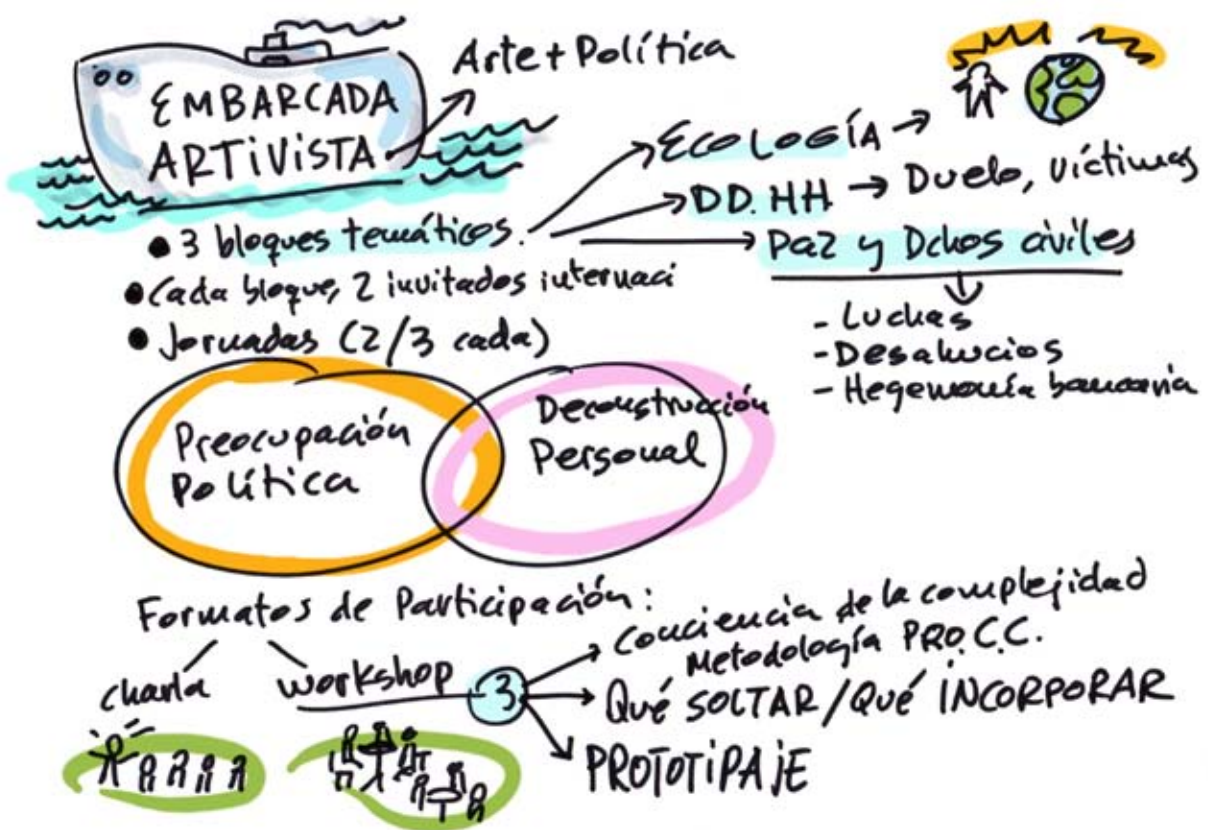 EMBARCADA
ARTIVISTA
Arte + Política
ECOLOGÍA
DD.HH → Duelo, víctimas
Paz y Dchos civiles
- Luchas
- Desahucios
- Hegemonía bancaria
• 3 bloques temáticos.
• Cada bloque, 2 invitados internaci
• Jornadas (2/3 cada)
Preocupación
Política
Deconstrucción
Personal
Formatos de Participación:
charla
workshop
3
Conciencia de la complejidad
Metodología PRO.C.C.
Qué SOLTAR / Qué INCORPORAR
PROTOTIPAJE